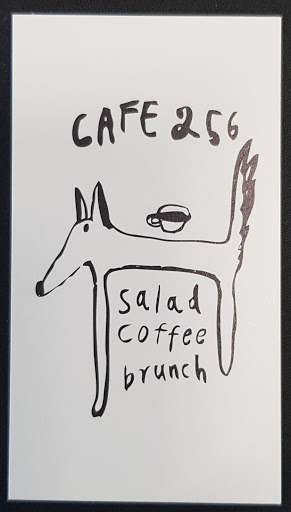 CAFE 256
salad
coffee
brunch